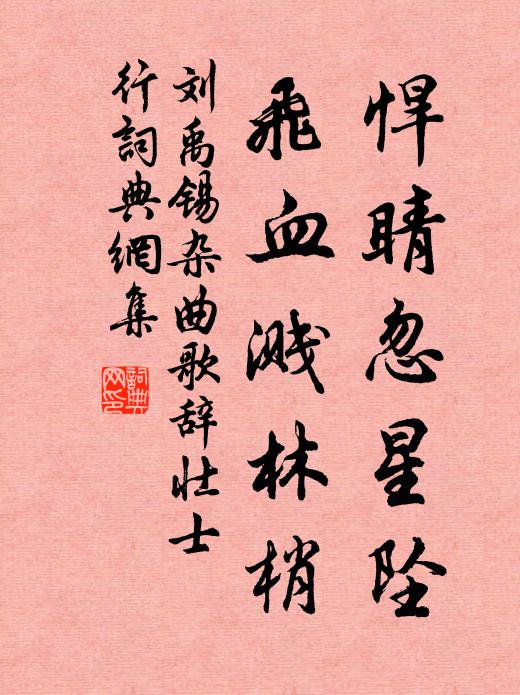 悍睛忽星坠
飞血溅林梢
刘禹锡杂曲歌辞壮士
行詞典網集
詞典
网印